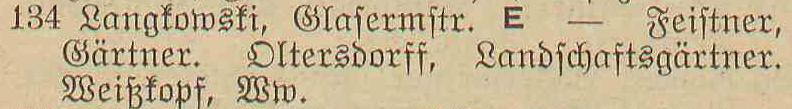 134 Langkowski, Glasermstr. E — Feistner,
Gärtner. Oltersdorff, Landschaftsgärtner.
Weißkopf, Ww.